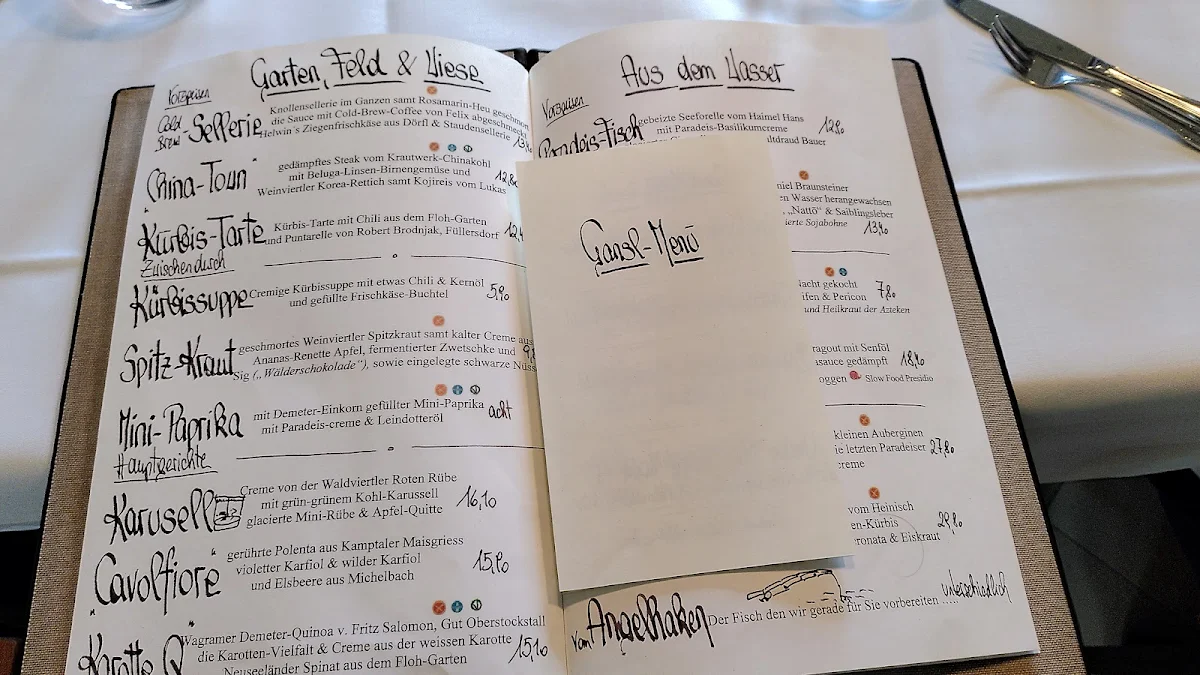 Garten, Feld & Wiese
Vorspeisen
Cold Brew-Sellerie
Knollensellerie im Ganzen samt Rosamarin-Heu geschmort
die Sauce mit Cold-Brew-Coffee von Felix abgeschmeckt
Helwin's Ziegenfrischkäse aus Dörfl & Staudensellerie
"China-Toun"
gedämpftes Steak vom Krautwerk-Chinakohl
mit Beluga-Linsen-Birnengemüse und
Weinviertler Korea-Rettich samt Kojireis vom Lukas
Kürbis-Tarte
Kürbis-Tarte mit Chili aus dem Floh-Garten
und Puntarelle von Robert Brodnjak, Füllersdorf
Zwischendurch
Kürbissuppe
Cremige Kürbissuppe mit etwas Chili & Kernöl
und gefüllte Frischkäse-Buchtel
5,90
Spitz-Kraut
geschmortes Weinviertler Spitzkraut samt kalter Creme aus
Ananas-Renette Apfel, fermentierter Zwetschke und
Sig („Wälderschokolade"), sowie eingelegte schwarze Nüss
Mini-Paprika
mit Demeter-Einkorn gefüllter Mini-Paprika acht
mit Paradeis-creme & Leindotteröl
Hauptgerichte
Karusell
Creme von der Waldviertler Roten Rübe
mit grün-grünem Kohl-Karussell
glacierte Mini-Rübe & Apfel-Quitte
16,10
"Cavolfiore"
gerührte Polenta aus Kamptaler Maisgriess
violetter Karfiol & wilder Karfiol
und Elsbeere aus Michelbach
15,90
Karotte Q
Wagramer Demeter-Quinoa v. Fritz Salomon, Gut Oberstockstall
die Karotten-Vielfalt & Creme aus der weissen Karotte
Neuseeländer Spinat aus dem Floh-Garten
15,10
Aus dem Wasser
Vorspeisen
Paradeis-Fisch
gebeizte Seeforelle vom Haimel Hans
mit Paradeis-Basilikumcreme
ldtraud Bauer
12,80
niel Braunsteiner
en Wasser herangewachsen
„Nattō" & Saiblingsleber
ierte Sojabohne
13,90
Nacht gekocht
ifen & Pericon
und Heilkraut der Azteken
7,80
ragout mit Senföl
nsauce gedämpft
oggen Slow Food Presidio
18,90
kleinen Auberginen
ie letzten Paradeiser
creme
27,80
vom Heinisch
en-Kürbis
ronata & Eiskraut
29,80
Gansl-Menü
vom Angelhaken
Der Fisch den wir gerade für Sie vorbereiten ..... unterschiedlich